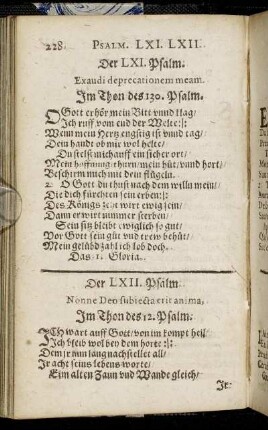 228. PSALM. LXI. LXII.
Der LXI. Psalm.
Exaudi deprecationem meam.
Im Thon des 130. Psalm.
O Gott erhör mein Bitt vnnd klag/
Ich ruff vom end der Welte:|:
Wenn mein Hertz engstig ist vnnd zag/
Dein handt ob mir wol helte/
Du stelst mich auff ein sicher ort/
Mein hoffnung thurn mein hüt vnnd hort/
Beschirm mich mit dein flügeln.
2. O Gott du thust nach dem willn mein/
Die dich fürchten sein erben:|:
Des Königs zeyt wirt ewig sein/
Dann er wirt nimmer sterben/
Sein sitz bleibt ewiglich so gut/
Vor Gott sein güt vnd trew behüt/
Mein gelübd zahl ich lob doch.
Das. 1. Gloria.
Der LXII. Psalm.
Nonne Deo subiecta erit anima.
Im Thon des 12. Psalm.
ICH wart auff Gott/ von im kompt heil/
Ich bleib wol bey dem horte:|:
Dem jr nun lang nachstellet all/
Ir acht seins lebens worte/
Eim alten Zaun vnd Wande gleich/
Ir: